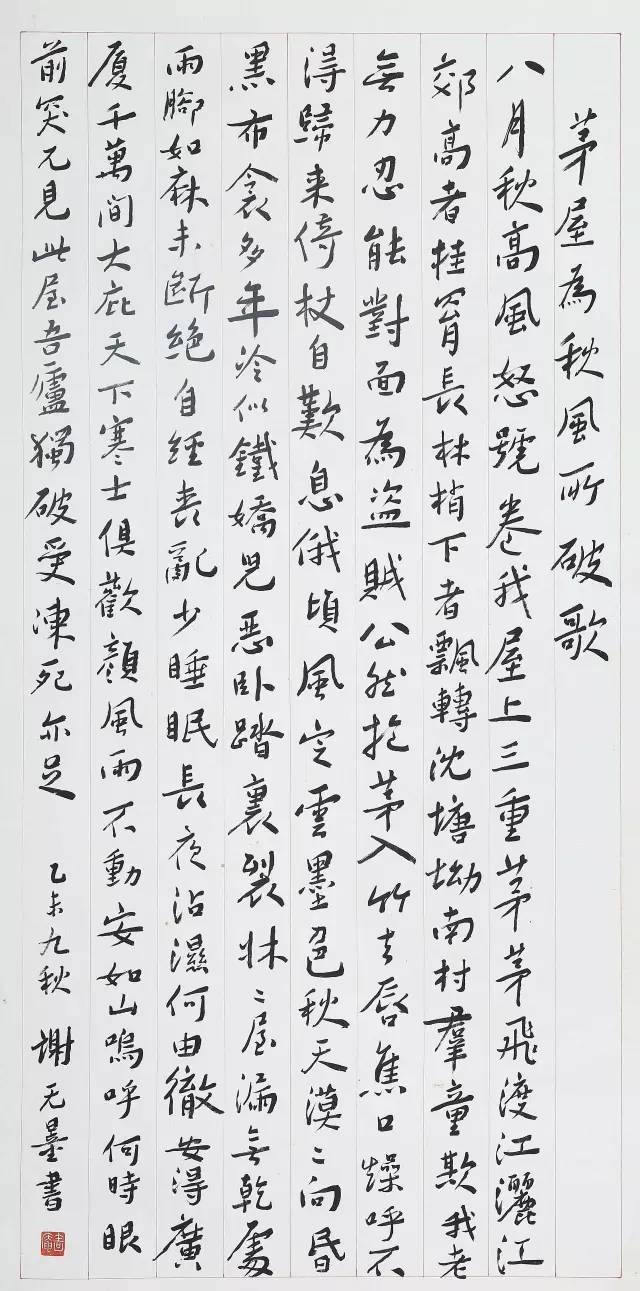 茅屋為秋風所破歌
八月秋高風怒號卷我屋上三重茅茅飛渡江灑江
郊高者挂罥長林梢下者飄轉沈塘坳南村羣童欺我老
無力忍能對面為盜賊公然抱茅入竹去唇焦口燥呼不
得歸來倚杖自歎息俄頃風定雲墨色秋天漠〻向昏
黑布衾多年冷似鐵嬌兒惡臥踏裏裂牀〻屋漏無乾處
雨腳如麻未斷絕自經喪亂少睡眠長夜沾濕何由徹安得廣
廈千萬間大庇天下寒士俱歡顏風雨不動安如山嗚呼何時眼
前突兀見此屋吾廬獨破受凍死亦足
乙未九秋 謝无墨書